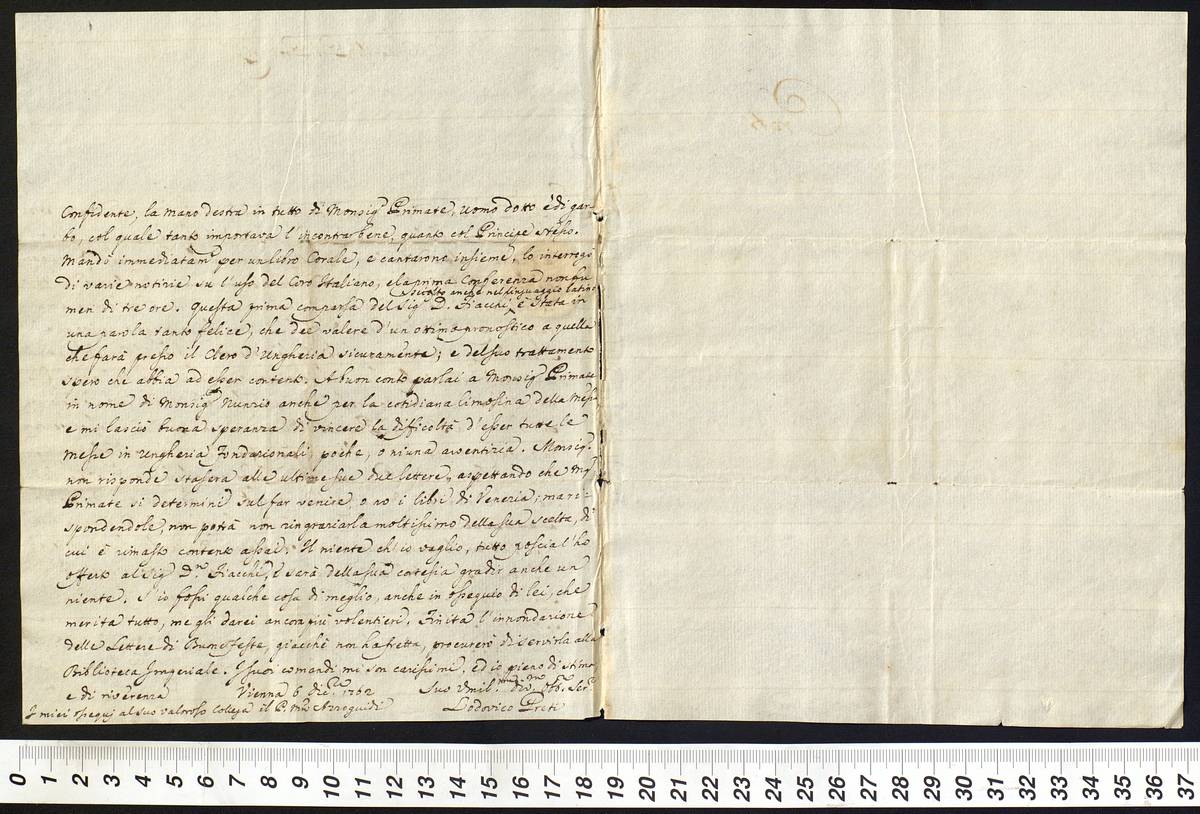 Confidente, la mano destra in tutto di Monsig.r Primate, Uomo dotto e di gar-
bo, col quale tanto importava l'incontrar bene, quanto col Principe stesso.
Mandò immediatam.e per un libro Corale, e cantarono insieme, lo interrogò
di varie notizie su l'uso del Coro Italiano, e la prima Conferenza non fu
men di tre ore. Questa prima comparsa del Sig.r D. Fiacchi, sciolto anche nel linguaggio latino è stata in
una parola tanto felice, che dee valere d'un ottimo pronostico a quella
che farà presso il Clero d'Ungheria sicuramente; e del suo trattamento
spero che abbia ad esser contento. A buon conto parlai a Monsig.r Primate
in nome di Monsig.r Nunzio anche per la cotidiana limosina della Messa
e mi lasciò buona speranza di vincere la difficoltà d'esser tutte le
messe in Ungheria Fondazionali, poche, o niuna avventizia. Monsig.r
non risponde stassera alle ultime sue due lettere, aspettando che
Primate si determini sul far venire, o no i libri di Venezia; ma ri-
spondendole, non potrà non ringraziarla moltissimo della sua scelta, di
cui è rimasto contento assai. Il niente ch'io vaglio, tutto poscia l'ho
offerto al Sig.r D.n Fiacchi, e sarà della sua cortesia gradir anche un
niente. S'io fossi qualche cosa di meglio, anche in ossequio di lei, che
merita tutto, me gli darei ancora più volentieri. Finita l'innondazione
delle Lettere di Buone Feste, giacchè non ha fretta, procurerò di servirla alla
Biblioteca Imperiale. I suoi comandi mi son carissimi, ed io pieno di stima
e di riverenza Vienna 6 dic.re 1762 Suo Umil.mo div.mo obb. Ser.
I miei ossequj al suo valoroso collega il P. Mro Lodovico Preti